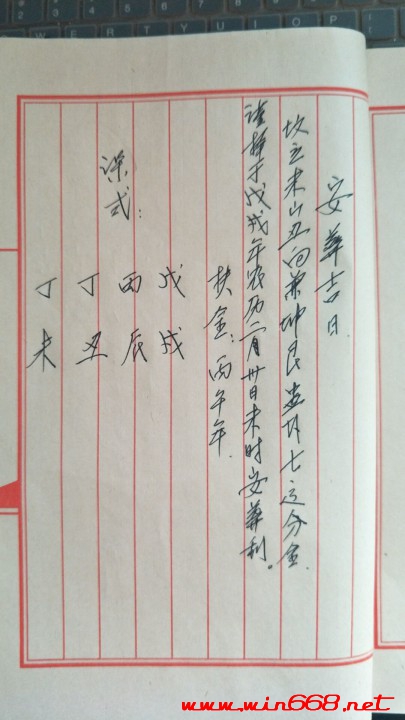 安葬吉日
坟立未山丑向兼坤艮 七运分金
请择于戊戌年农历二月卅日未时安葬利。
扶金：丙午年.
课式：
戊戌
丙辰
丁丑
丁未
www.win668.net